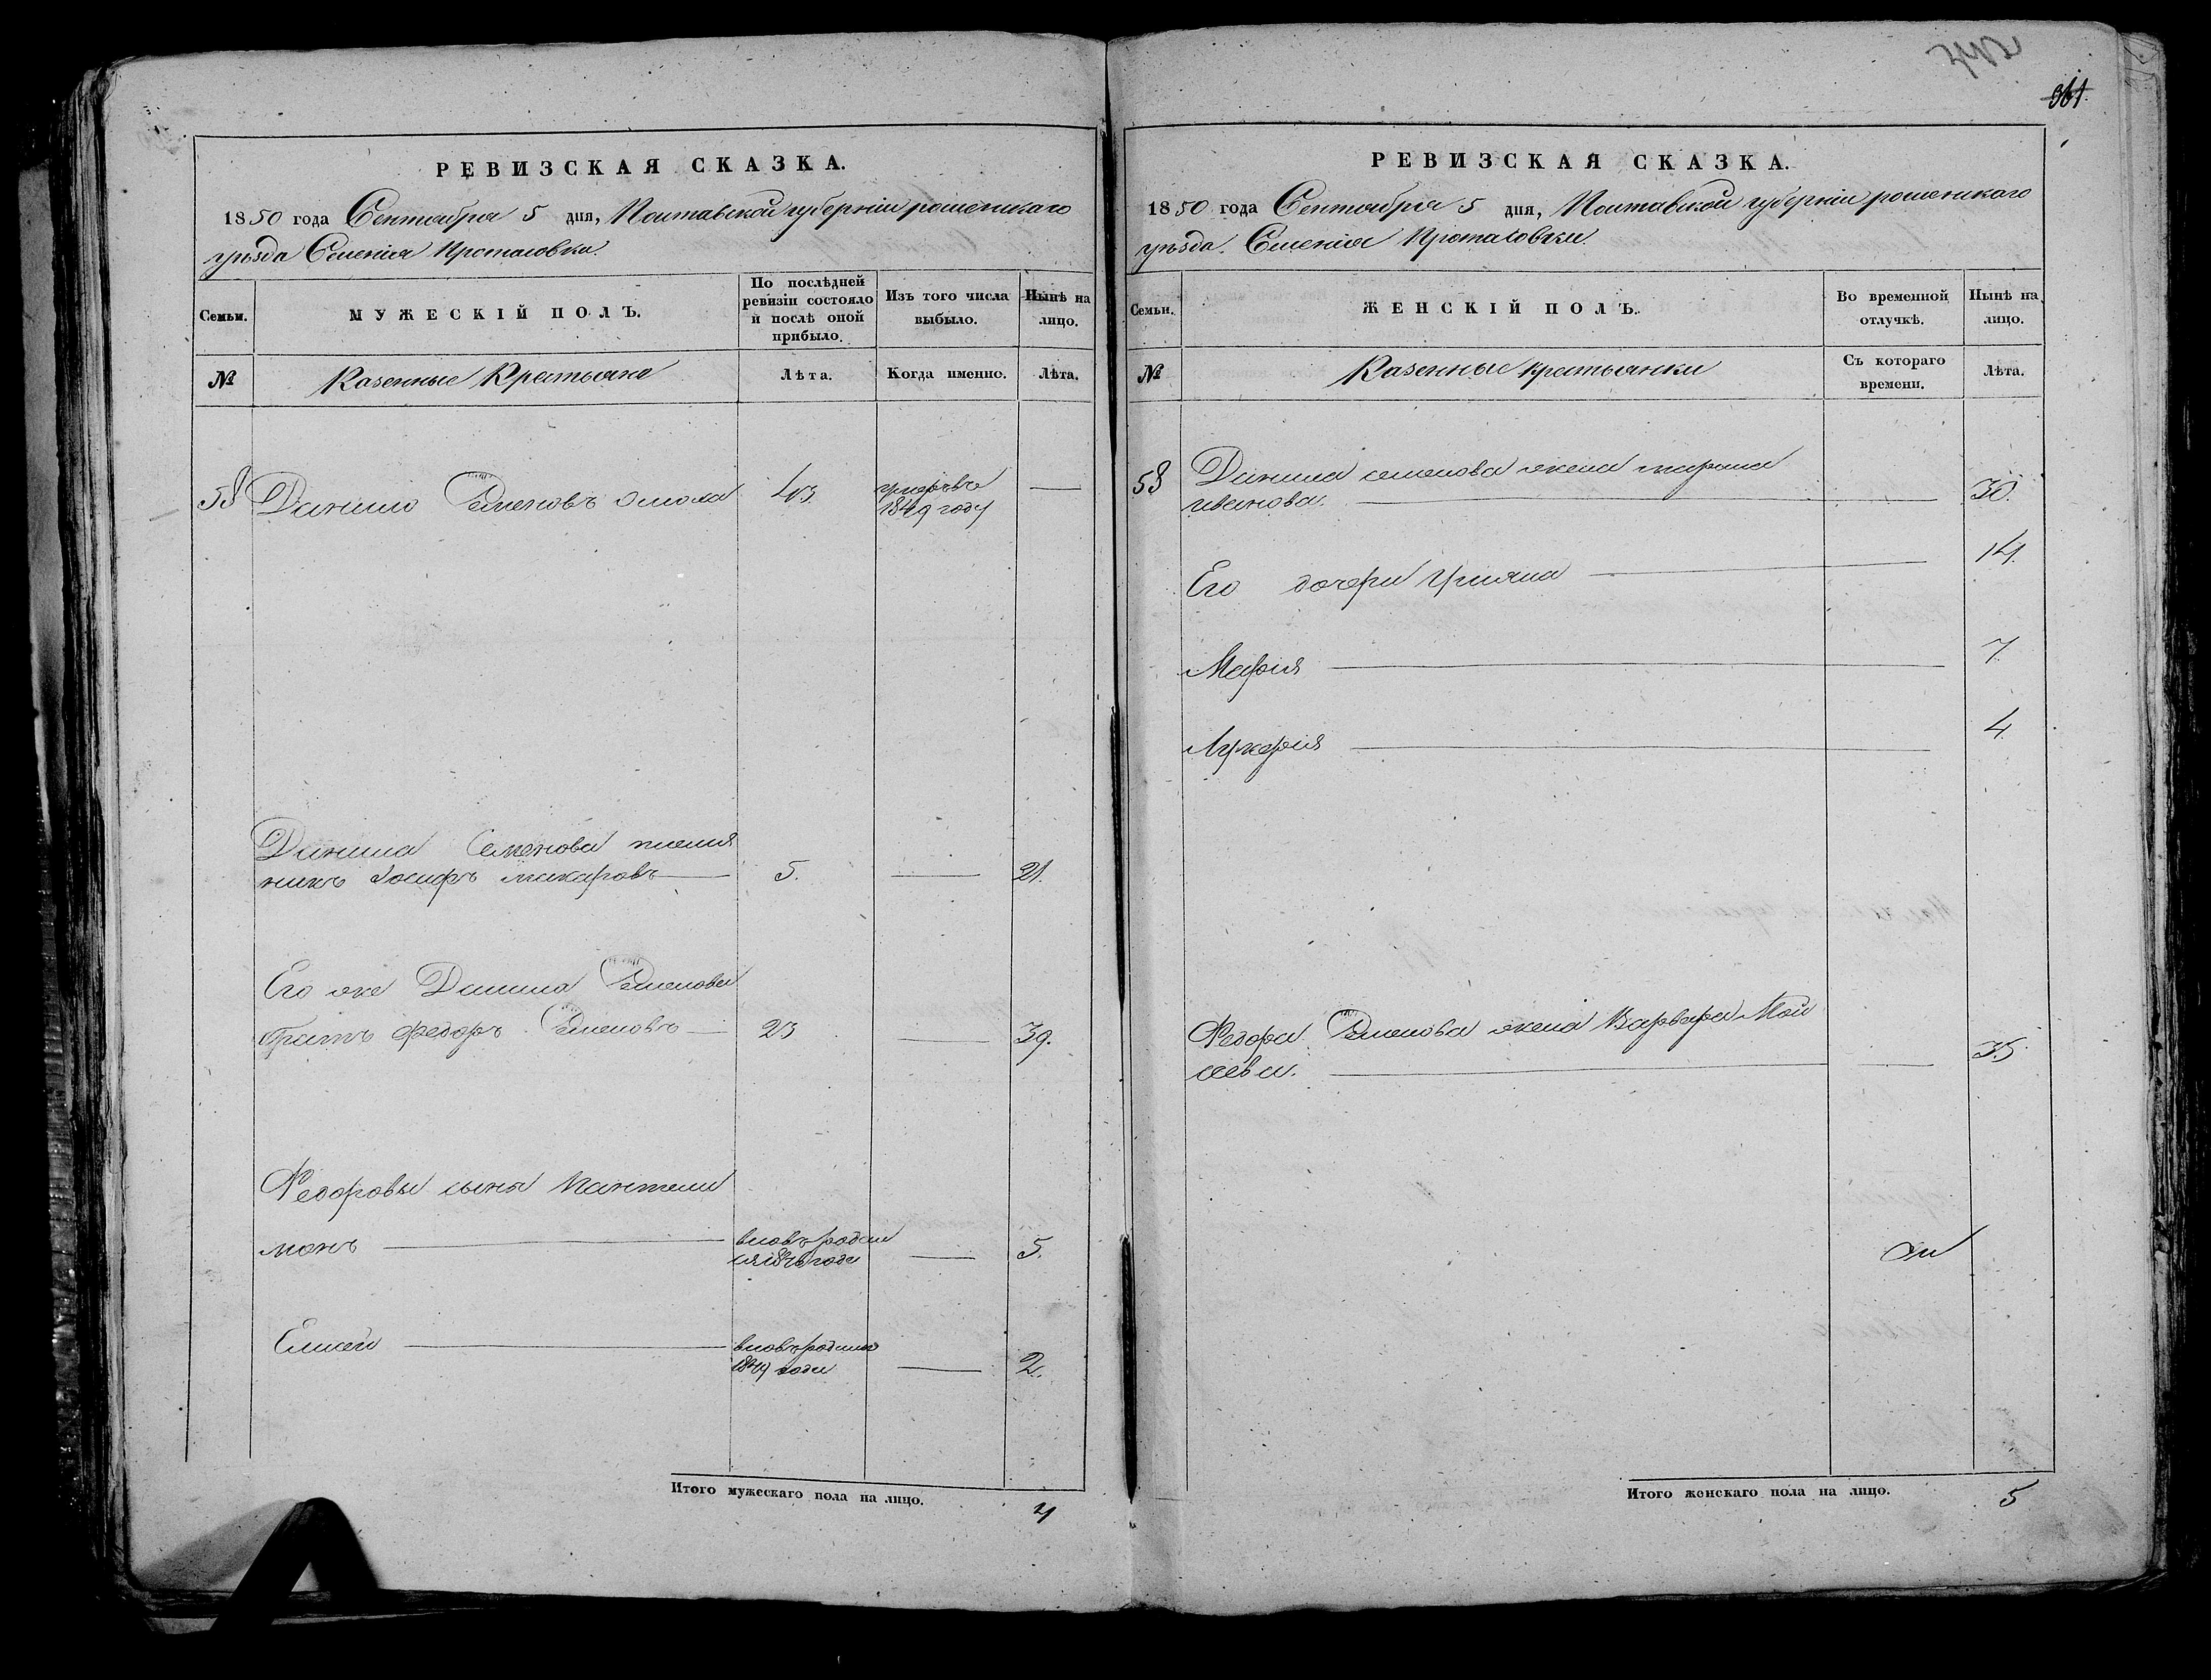 РЕВИЗСКАЯ СКАЗКА.
1850 года Сентября 5 дня, Полтавской губерніи роменскаго
уѣзда Селенія Протасовки.
Семьи.
МУЖЕСКІЙ ПОЛЪ.
По послѣдней ревизіи состояло и послѣ оной прибыло.
Изъ того числа выбыло.
Нынѣ на лицо.
№
Казенные Крестьяне
Лѣта.
Когда именно.
Лѣта.
58 Данило Семеновъ 43 умеръ въ
1849 году
Данила Семенова племян
никъ Іосифъ макаровъ 5. 21.
Его же Данила Семенова
братъ Федоръ Семеновъ 23 39.
Федоровы сыня Пантели
монъ вновь родил 5.
ся 1846 года
Елисей вновь родился
1849 года 2.
Итого мужескаго пола на лицо. 4
361.
РЕВИЗСКАЯ СКАЗКА.
1850 года Сентября 5 дня, Полтавской губерніи роменскаго
уѣзда. Селенія Протасовки.
Семьи.
ЖЕНСКІЙ ПОЛЪ.
Во временной отлучкѣ.
Нынѣ на лицо.
№
Казенные крестьянки
Съ котораго времени.
Лѣта.
58 Данила семенова жена
иванова. 30.
Его дочери Ульяна 14.
Марфія 7.
Лукерія 4.
Федора Семенова жена Варвара Мой
сеева. 35
Итого женскаго пола на лицо. 5